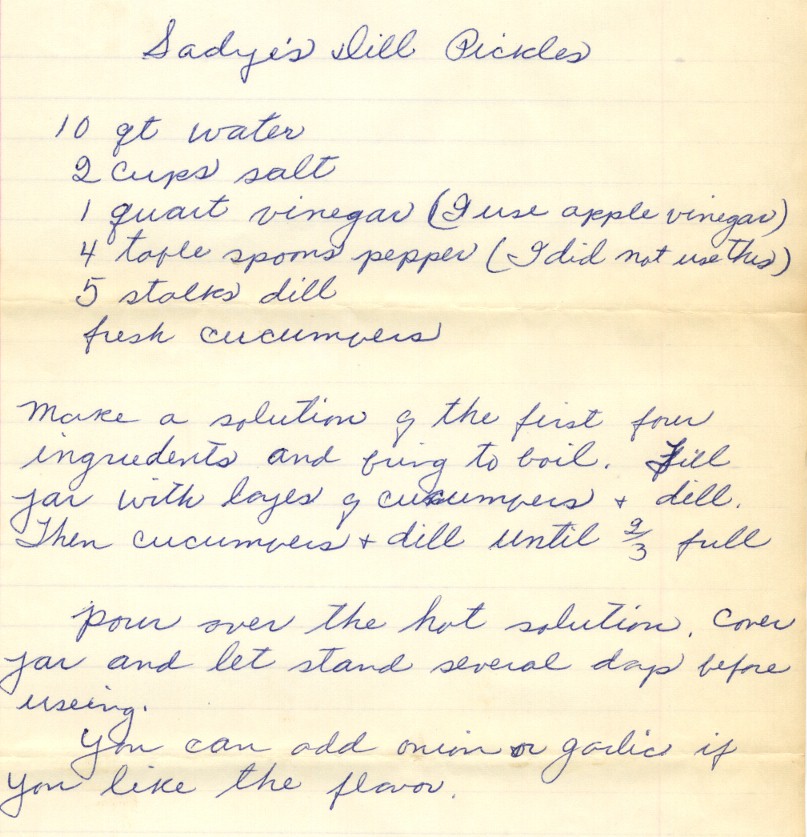 Sadye's Dill Pickles
10 qt water
2 cups salt
1 quart vinegar (I use apple vinegar)
4 table spoons pepper (I did not use this)
5 stalks dill
fresh cucumbers
Make a solution of the first four
ingredents and bring to boil. Fill
jar with layes of cucumbers + dill.
Then cucumbers + dill until 2/3 full
pour over the hot solution. Cover
jar and let stand several days before
useing.
You can add onion or garlic if
you like the flavor.